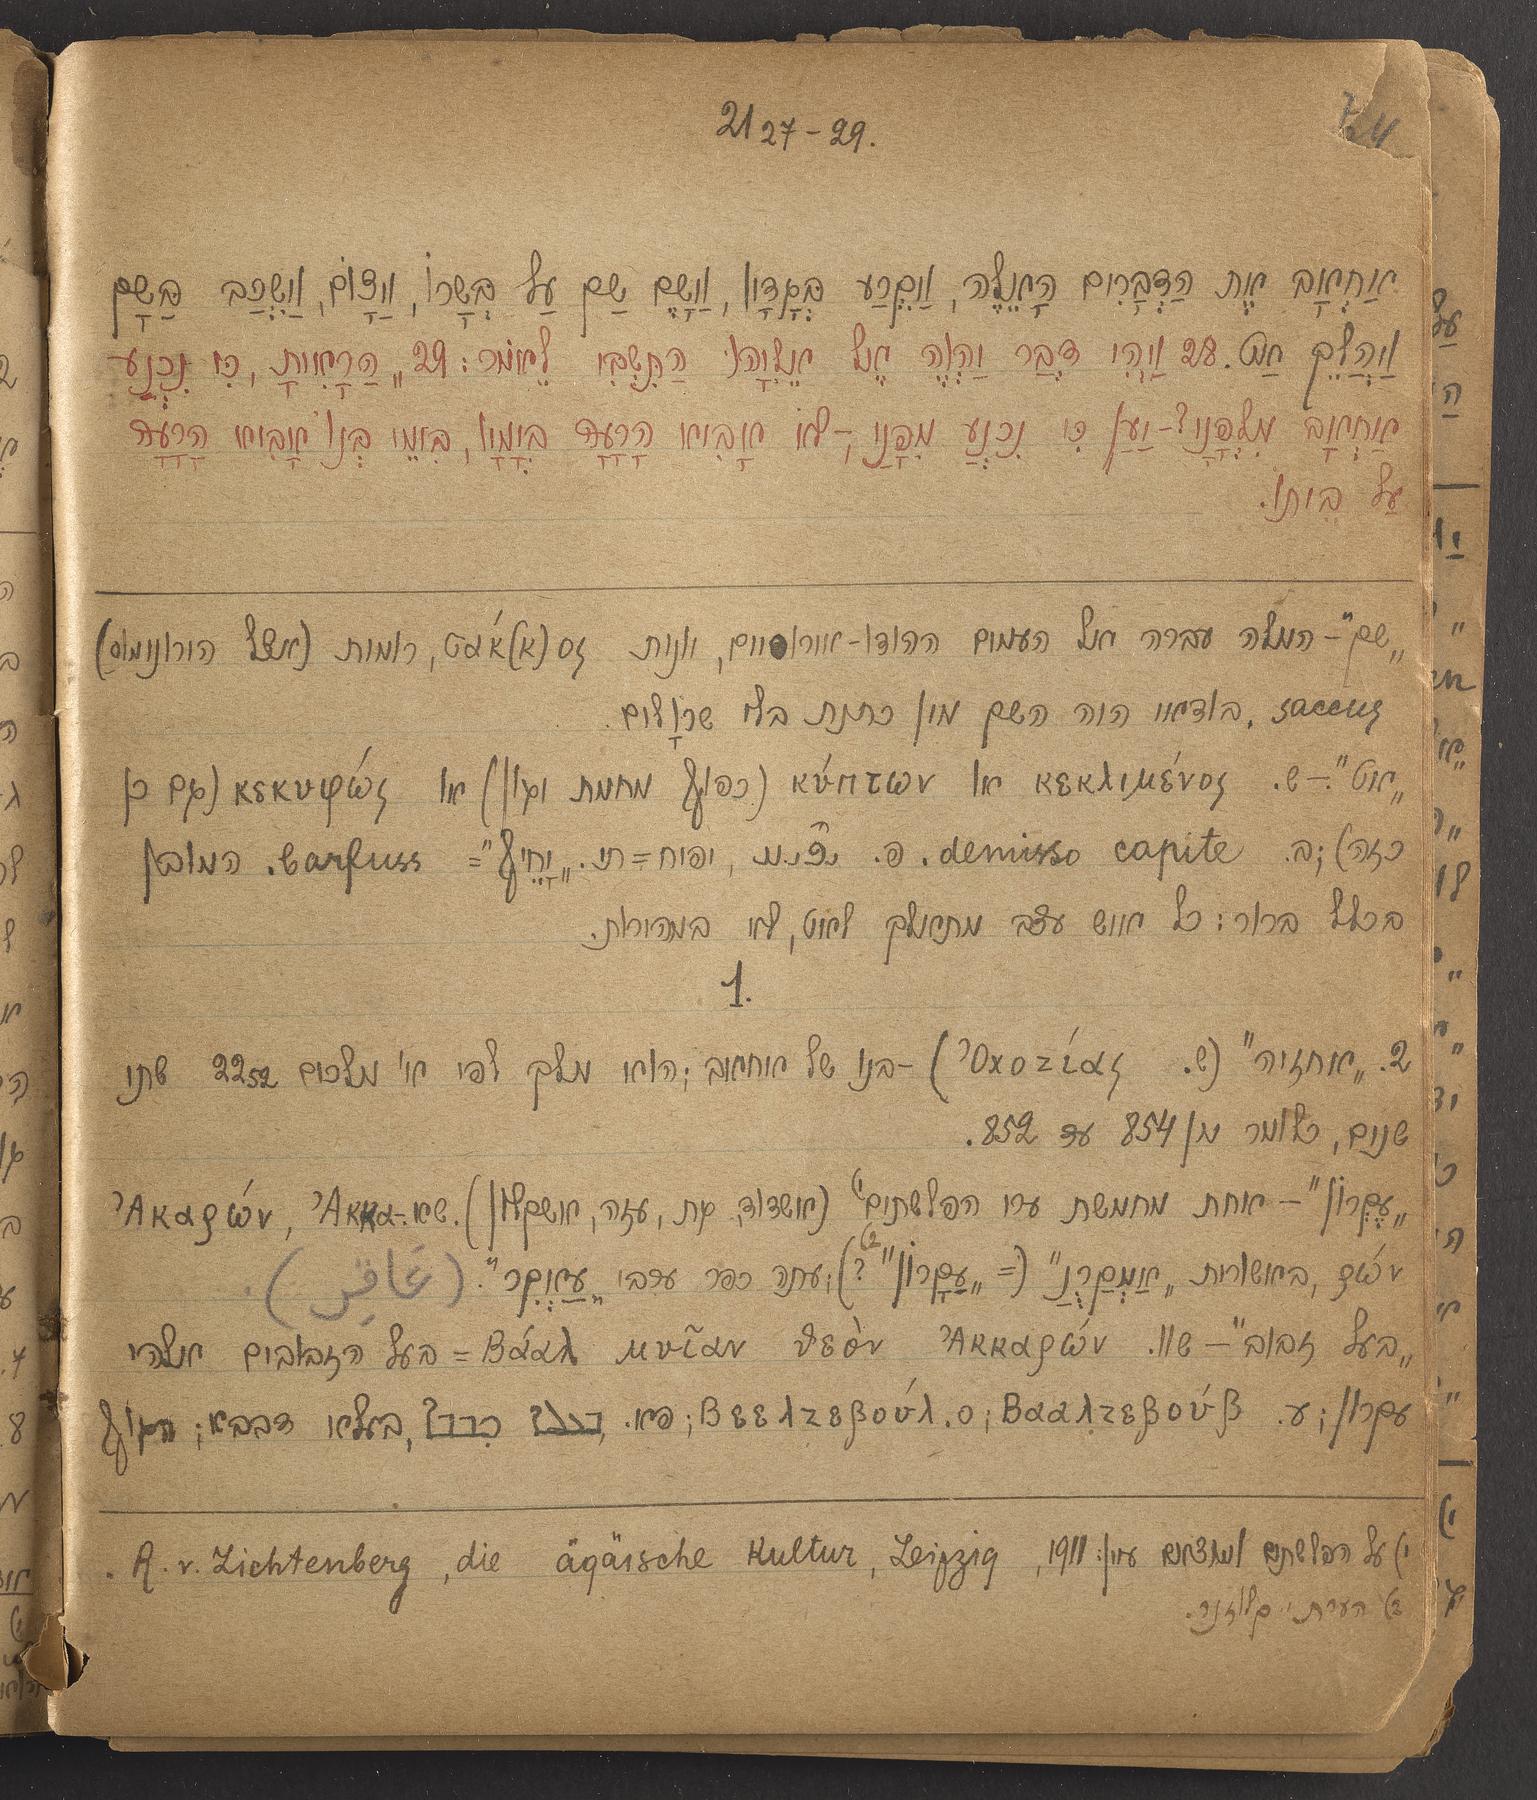 21 27-29.
אַחְאָב אֶת הַדְּבָרִים הָאֵלֶּה, וַיִּקְרַע בְּגָדָיו, וַיָּשֶׂם שַׂק עַל בְּשָׂרוֹ, וַיָּצוֹם, וַיִּשְׁכַּב בַּשָּׂק
וַיְהַלֵּךְ אַט. 28 וַיְהִי דְּבַר יַהְוֶה אֶל אֵלִיָּהוּ הַתִּשְׁבִּי לֵאמֹר: 29 „הֲרָאִיתָ, כִּי נִכְנַע
אַחְאָב מִלְּפָנָי? – יַעַן כִּי נִכְנַע מִפָּנַי, – לֹא אָבִיא הָרָעָה בְּיָמָיו, בִּימֵי בְּנוֹ אָבִיא הָרָעָה
עַל בֵּיתוֹ.
„שק" – המלה עברה אל העמים ההודו-אירופיים, יונית σάκ(κ)ος, רומית (אצל הירונימוס)
saccus. בודאי היה השק מין כתנת בלי שרוָלים.
„אט" – ש. κεκλιμένος או κύπτων (כפוף מחמת יגון) או κεκυφώς (גם כן
כזה); ב. demisso capite. פ. יחף = תי. „יָחֵיף" = barfuss. המובן
בכלל ברור: כל איש עצב מתהלך לאט, לא במהירות.
1.
2. „אחזיה" (ש. Ὀχοζίας) – בנו של אחאב; הוא מלך לפי א' מלכים 22 52 שתי
שנים, כלומר מן 854 עד 852.
„עֶקְרוֹן" – אחת מחמשת ערי הפלשתים¹⁾ (אשדוד, גת, עזה, אשקלון). שא. Ἀκκα-, Ἀκαρών
ρών, באשורית „אַמְקַרֻנַ" (= „עַקָּרוֹן"²⁾?); עתה כפר ערבי „עַאקִר". (عَاقِر).
„בעל זבוב" – שוו. Βάαλ μυῖαν θεὸν Ἀκκαρών = בעל הזבובים אלהי
עקרון; ע. Βααλζεβούβ; ס. Βεελζεβούλ; פא. בעלא דבבא;
1) על הפלשתים ומוצאם עיין: A. v. Lichtenberg, die ägäische Kultur, Leipzig, 1911.
2) הערת י. קלוזנר.